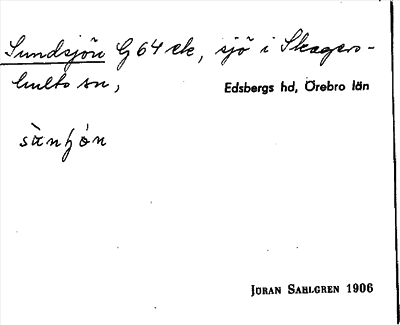 Sundsjön G 64 ek, sjö i Skagers-
hults sn,
Edsbergs hd, Örebro län
sànʃón
JÖRAN SAHLGREN 1906